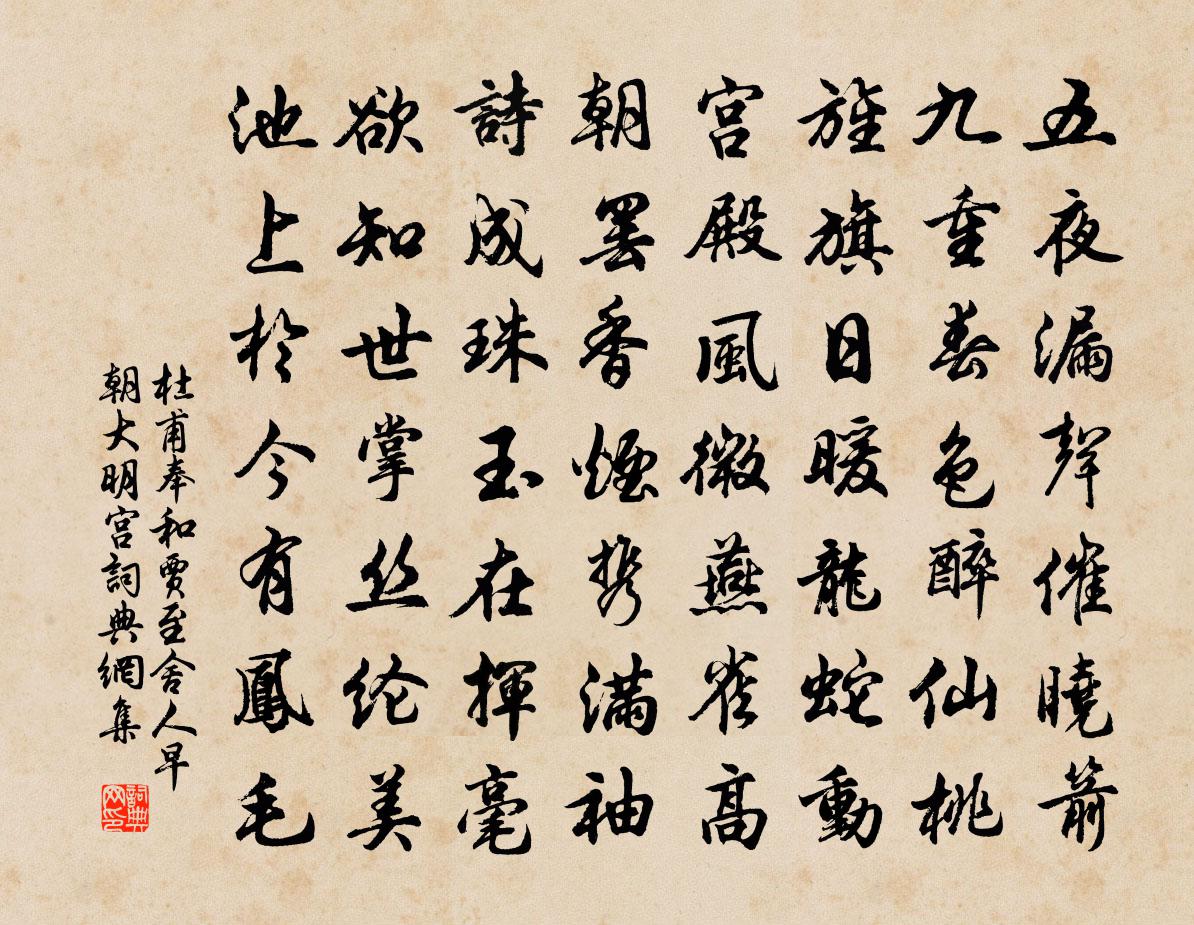 五夜漏聲催曉箭
九重春色醉仙桃
旌旗日暖龍蛇動
宮殿風微燕雀高
朝罷香煙携滿袖
詩成珠玉在揮毫
欲知世掌丝纶美
池上於今有鳳毛
杜甫奉和賈至舍人早
朝大明宮詞典網集
詞典网印